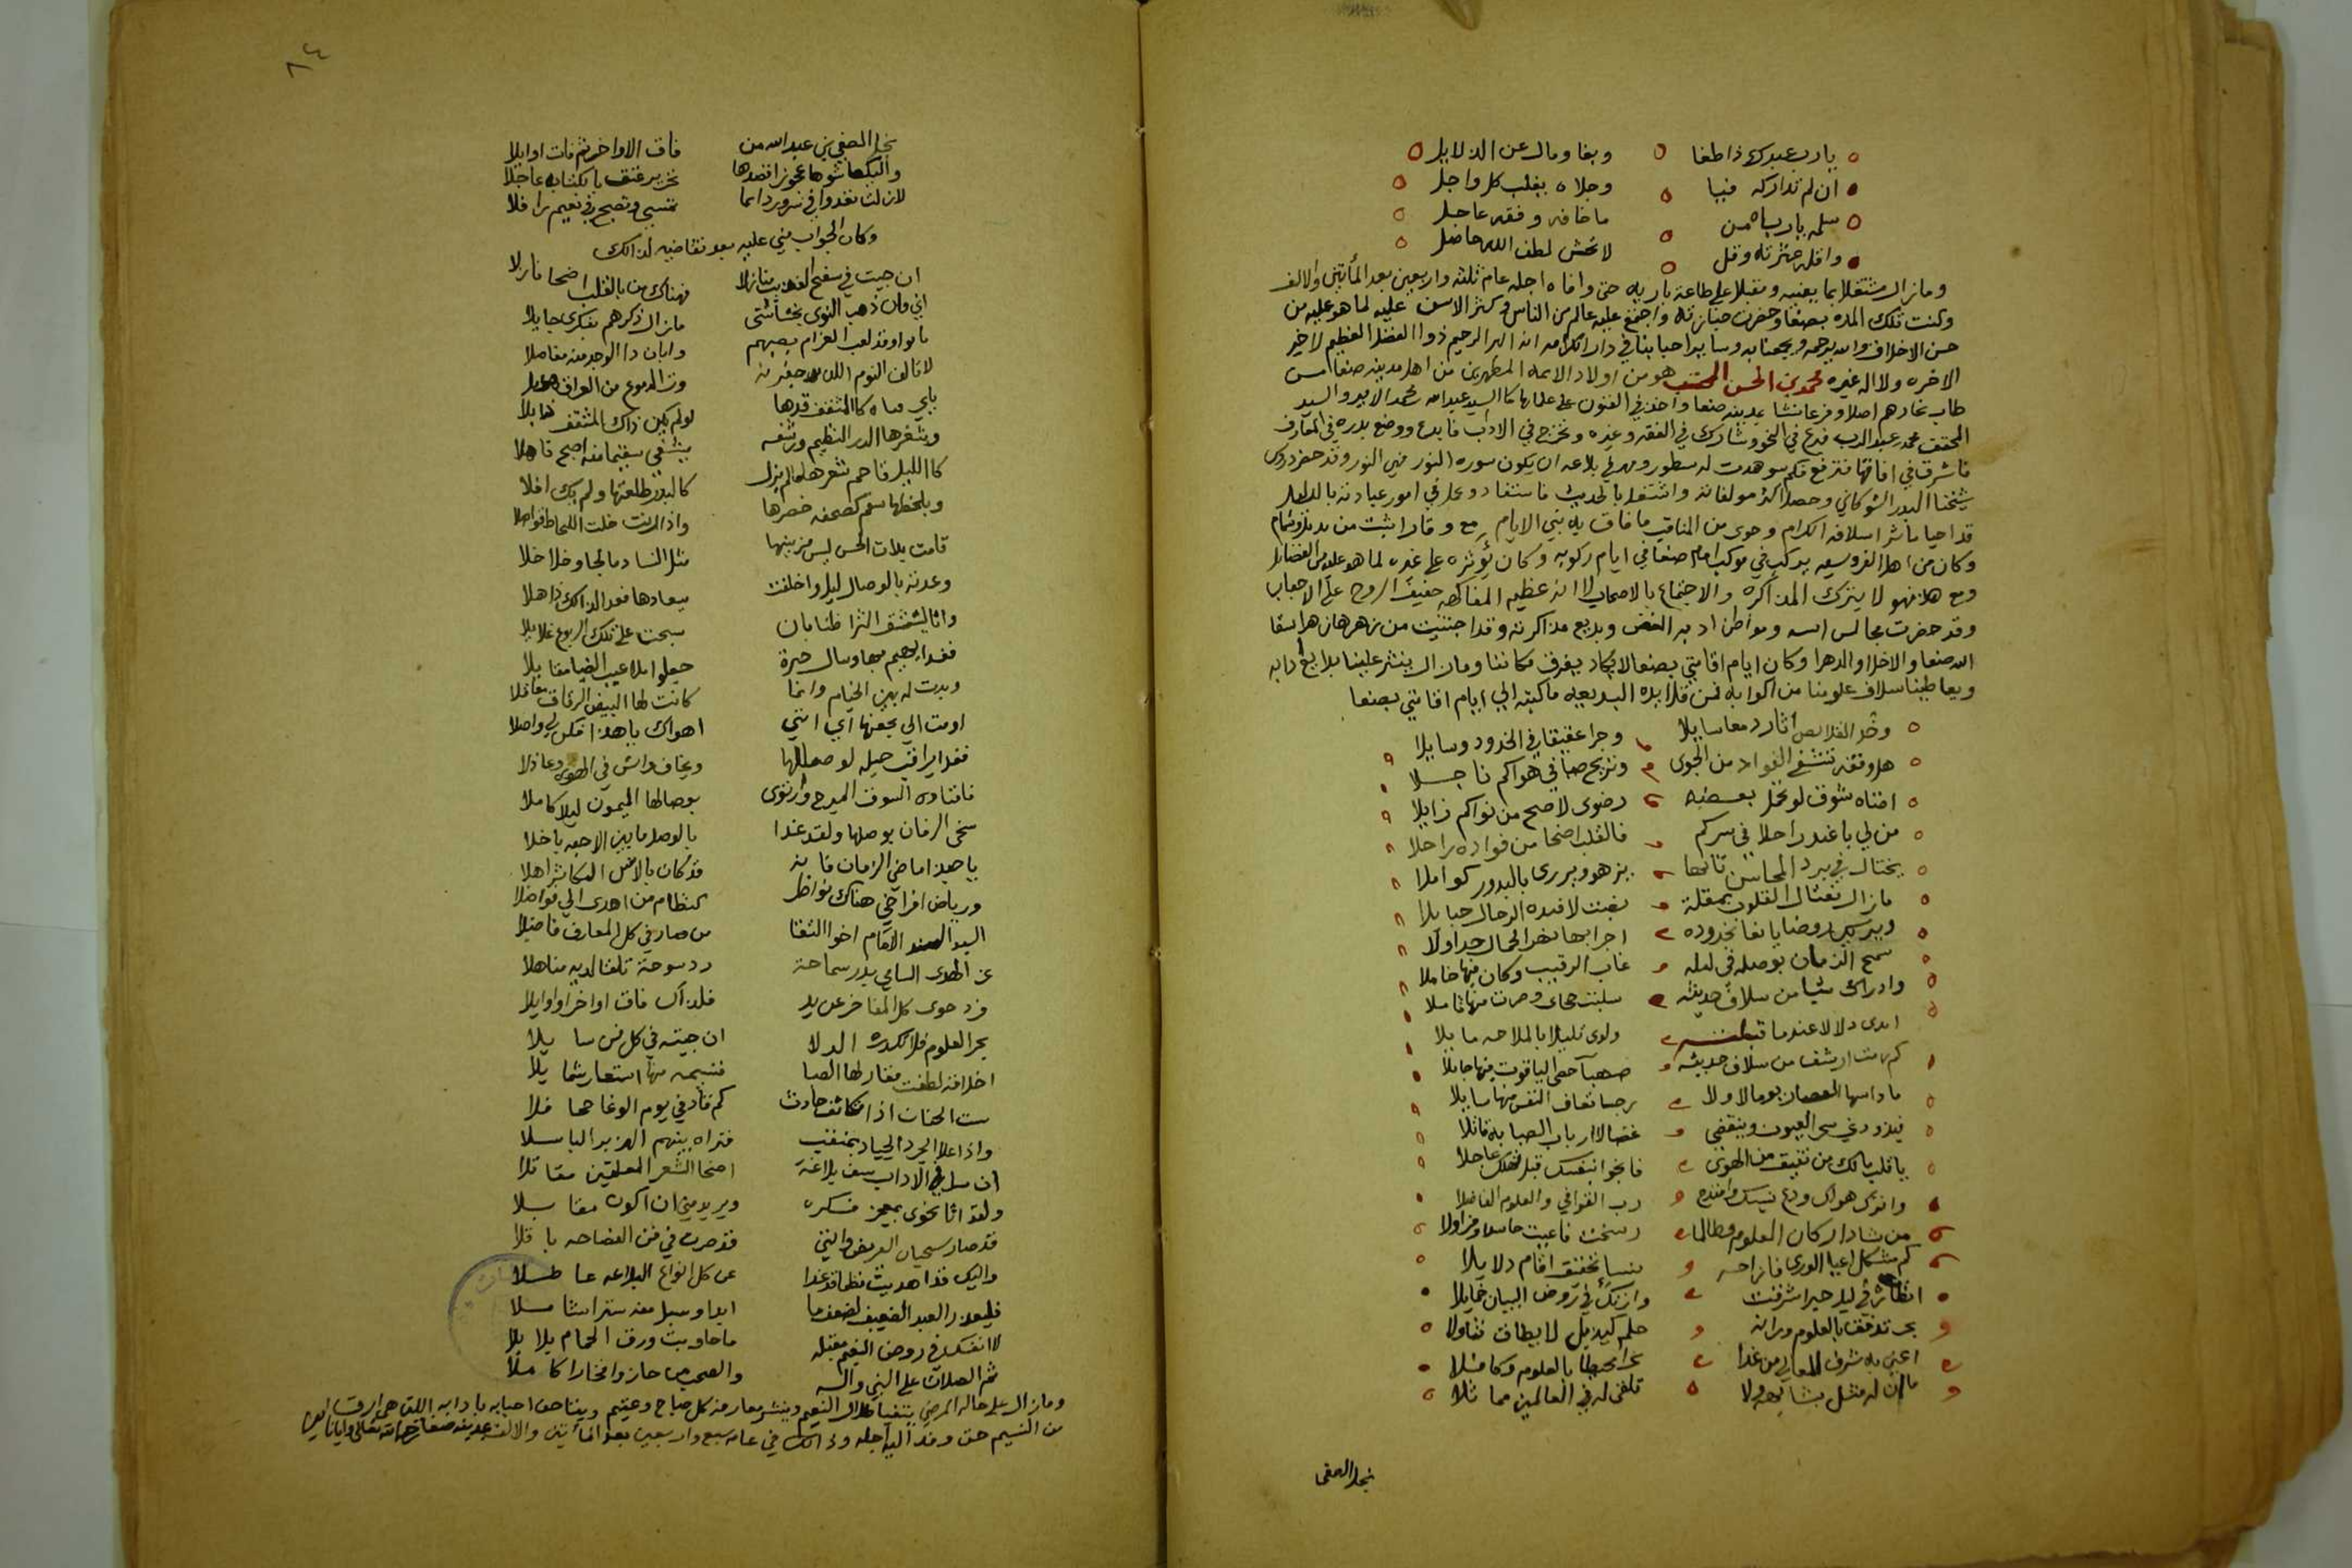 يارب عبدك ذا طغا وبغا ومال عن الدلايل
ان لم تداركه فيا وجلاه بقلب كل واجل
سلمه يا رباه من ما خافه وفقه عاجل
واقله عثرته وقل لا تخش لطف الله حاصل
وما زال مشتغلا بما يعنيه ومقبلا على طاعة باريه حتى وافاه اجله عام ثلثه واربعين بعد المأتين والالف
وكنت تلك المده بصنعا وحضرت جنازته واجتمع عليه عالم من الناس وكثر الاسف عليه لما هو عليه من
حسن الاخلاق والله يرحمه ويجمعنا به وساير احبابنا في دار الكرامه انه البر الرحيم ذوا الفضل العظيم لا خير
الاخره ولا اله غيره محمد بن الحسن المحتسب هو من اولاد الايمه المطهرين من اهل مدينه صنعا ممن
طاب نجارهم اصلا وفرعا نشا بمدينه صنعا واخذ في الفنون على علمائها كالسيد عبد الله محمد الامير والسيد
المحقق محمد عبد الرب فبرع في النحو وشارك في الفقه وغيره وتخرج في الادب فابدع ووضع بدره في المعارف
فاشرق في افاقها فترفع فكم شوهدت له سطور ومهر في بلاعه ان يكون سوره النور فهي النور وقد حضر دروس
شيخنا البدر الشوكاني وحصل اكثر مولفاته واشتغل بالحديث فاستفاد وعمل في امور عبادته بالدليل
قد احيا ماثر اسلافه الكرام وحوى من المناقب ما فاق به بني الايام مع وقار اثبت من يذبل وشمام
وكان من اهل الفروسيه يركب في موكب امام صنعا في ايام ركوبه وكان يؤثره على غيره لما هو عليه من الفضايل
ومع هذا فهو لا يترك المذاكره والاجتماع بالاصحاب لا انه عظيم المفاكهه خفيف الروح على الاحباب
وقد حضرت مجالس انسه ومواطن ادبه الغض وبديع مذاكرته وقد اجتنيت من زهرها زهرا سقا
الله صنعا والاخلا والدهرا وكان ايام اقامتي بصنعا لا يكاد يفرق مكاننا وما زال ينثر علينا بلايغ ادابه
ويعاطينا سلاف علومنا من اكوابه فمن قلايده البديعه ما كتبه الي ايام اقامتي بصنعا
وخد القلايص اثار دمعا سايلا وجرا عقيقا في الخدود وسايلا
هل وقفه تشفي الفواد من الجوى وتريح صبا في هواكم ناحلا
اضناه شوق لو يحل ببعضه رضوى لاصبح من نواكم زايلا
من لي باغيد راحلا في سركم فالقلب اضحا من فواده راحلا
يختال في برد المحاسن تائها يزهو ويزري بالبدور كواملا
مازال يغتال القلوب بمقلة بعثت لافيده الرجال حبايلا
ويريك روضا يانعا بخدوده اجرا بها نهر الجمال جداولا
سمح الزمان بوصله في ليله غاب الرقيب وكان فيها خاملا
وادراك شيا من سلاف حديثه سلبت حجاي وصرت منها ثاملا
ابدى دلالا عندما قبلته ولوى تليلا بالملاحه مايلا
كم بت ارشف من سلاف حديثه صهبا حصى الياقوت فيها جايلا
ماداسها العصار يوما لا ولا رجسا تعاف النفس منها سايلا
فيذودني سحر العيون وينقضي غضا لارباب الصبابه قاتلا
يا قلب مالك من تفيق من الهوى فانجوا بنفسك قبل تهلك عاجلا
واترك هواك ودع نسيبك وامتدح رب القوافي والعلوم الفاضلا
من شاد اركان العلوم وطالما رسخت فاعيت حاسدا ومزاولا
كم مشكل اعيا الورى فازاحه بنسا تحقيق اقام دلايلا
انظاره في ليل حبر اشرقت وازتك في روض البيان خمايلا
بحر تدفق بالعلوم وزانه حلم كيذبل لا يطاق تقاولا
اعني به شرف المعالي من غدا بحرا محيطا بالعلوم وكاملا
ما ان له مثل يشابهه ولا تلقى له في العالمين مماثلا
نجل الصفي
٨٤
نجل الصفي بن عبد الله من فاق الاواخر ثم فات اوايلا
واليكها شوهاء عجوز اقصدها تحرير عتق بالكتابه عاجلا
لازلت تغدوا في سرور دائما تمسي وتصبح في نعيم رافلا
وكان الجواب مني عليه بعد تقاضيه لذالك
ان جيت في سفح العذيب منازلا فهناك من بالقلب اضحا نازلا
اني وان ذهب النوى بحشاشتي مازال ذكرهم بفكري جايلا
بانوا وقد لعب الغرام بصبهم وابان ذا الوجد منه مفاصلا
لا تالف النوم اللذيذ جفونه وترى الدموع من العراق هواملا
بابي مهاه كالمثقف قدها لو لم يكن ذاك المثقف ذابلا
وبثغرها الدر النظيم ورشفه يشفي سقيما منه اصبح قاهلا
كالليل فاحم شعرها لم يزل كالبدر طلعتها ولم يك افلا
وبلحظها سقم كصحفه خصرها واذا رنت خلت اللحاظ فواصلا
قامت بلات الحسن ليس مزينها مثل النساد مالجا وخلاخلا
وعدته بالوصال ليلا واخلفت ميعادها فغدا لذالك ذاهلا
واثا ليشقشق الثرا ظنا بان سحبت على تلك الربوع غلايلا
فغدا يهيم بها وسال حيرة جعلوا ملاعيب الضبا مقايلا
وبدت له بين الخيام وانما كانت لها البيض الرقاق معاقلا
اومت الي بجفنها اي انني اهواك يا هذا فكن لي واصلا
فغدا يراقب حيله لوصالها ويخاف واش في الهوى وعاذلا
فاقتاده الشوق المبرح وارتوى بوصالها الميمون ليلا كاملا
سخي الزمان بوصلها ولقد غدا بالوصل مابين الاحبه باخلا
يا حبذا ماضي الزمان فانه قد كان بالانس المكاثر اهلا
ورياض افراحي هناك نواظر كنظام من اهدى الي فواضلا
السيد السند الامام اخوا التقا من صار في كل المعارف فاضلا
عز الهدى السامي بدر سماحة ردسوحة تلقا لديه مناهلا
فرد حوى كل المفاخر عن يد فلذاك فاق اواخرا واوايلا
بحر العلوم فلا تكدره الدلا ان جيته في كل فن سايلا
اخلاقه لطفت مقار لها الصبا فنسيمه منها استعار شمايلا
ست الجنان اذا تكاثف حادث كم قاد في يوم الوغا جحافلا
واذا علا الجرد الجياد بمقنب فتراه بينهم الهزبر الباسلا
ان سل في الاداب سيف بلاغة اضحا الشعر المعلقين مقاتلا
ولقد اتا نحوي بمعجز فكره ويريد مني ان اكون مقابلا
قد صار سحبان القريض وانني قد صرت في فن الفصاحه باقلا
واليك قد اهديت نظما قد غدا عن كل انواع البلاغه عاطلا
فليعذر العبد الضعيف لضعفها ابدا ويسبل منه سترا شاملا
لا انفك في روض النعيم مقيله ما جاوبت ورق الحمام بلابلا
ثم الصلاة على النبي واله والصحب من حازوا فخارا كاملا
وما زال على حاله المرضي يتفيا ظلال النعيم وينشر معارفه كل صباح وعتيم ويناجف احبابه بادابه اللتي هي ارق
من النسيم حتى وفد اليه اجله وذالك في عام سبع واربعين بعد المأتين والالف بمدينه صنعا رحمه الله تعالى وايانا